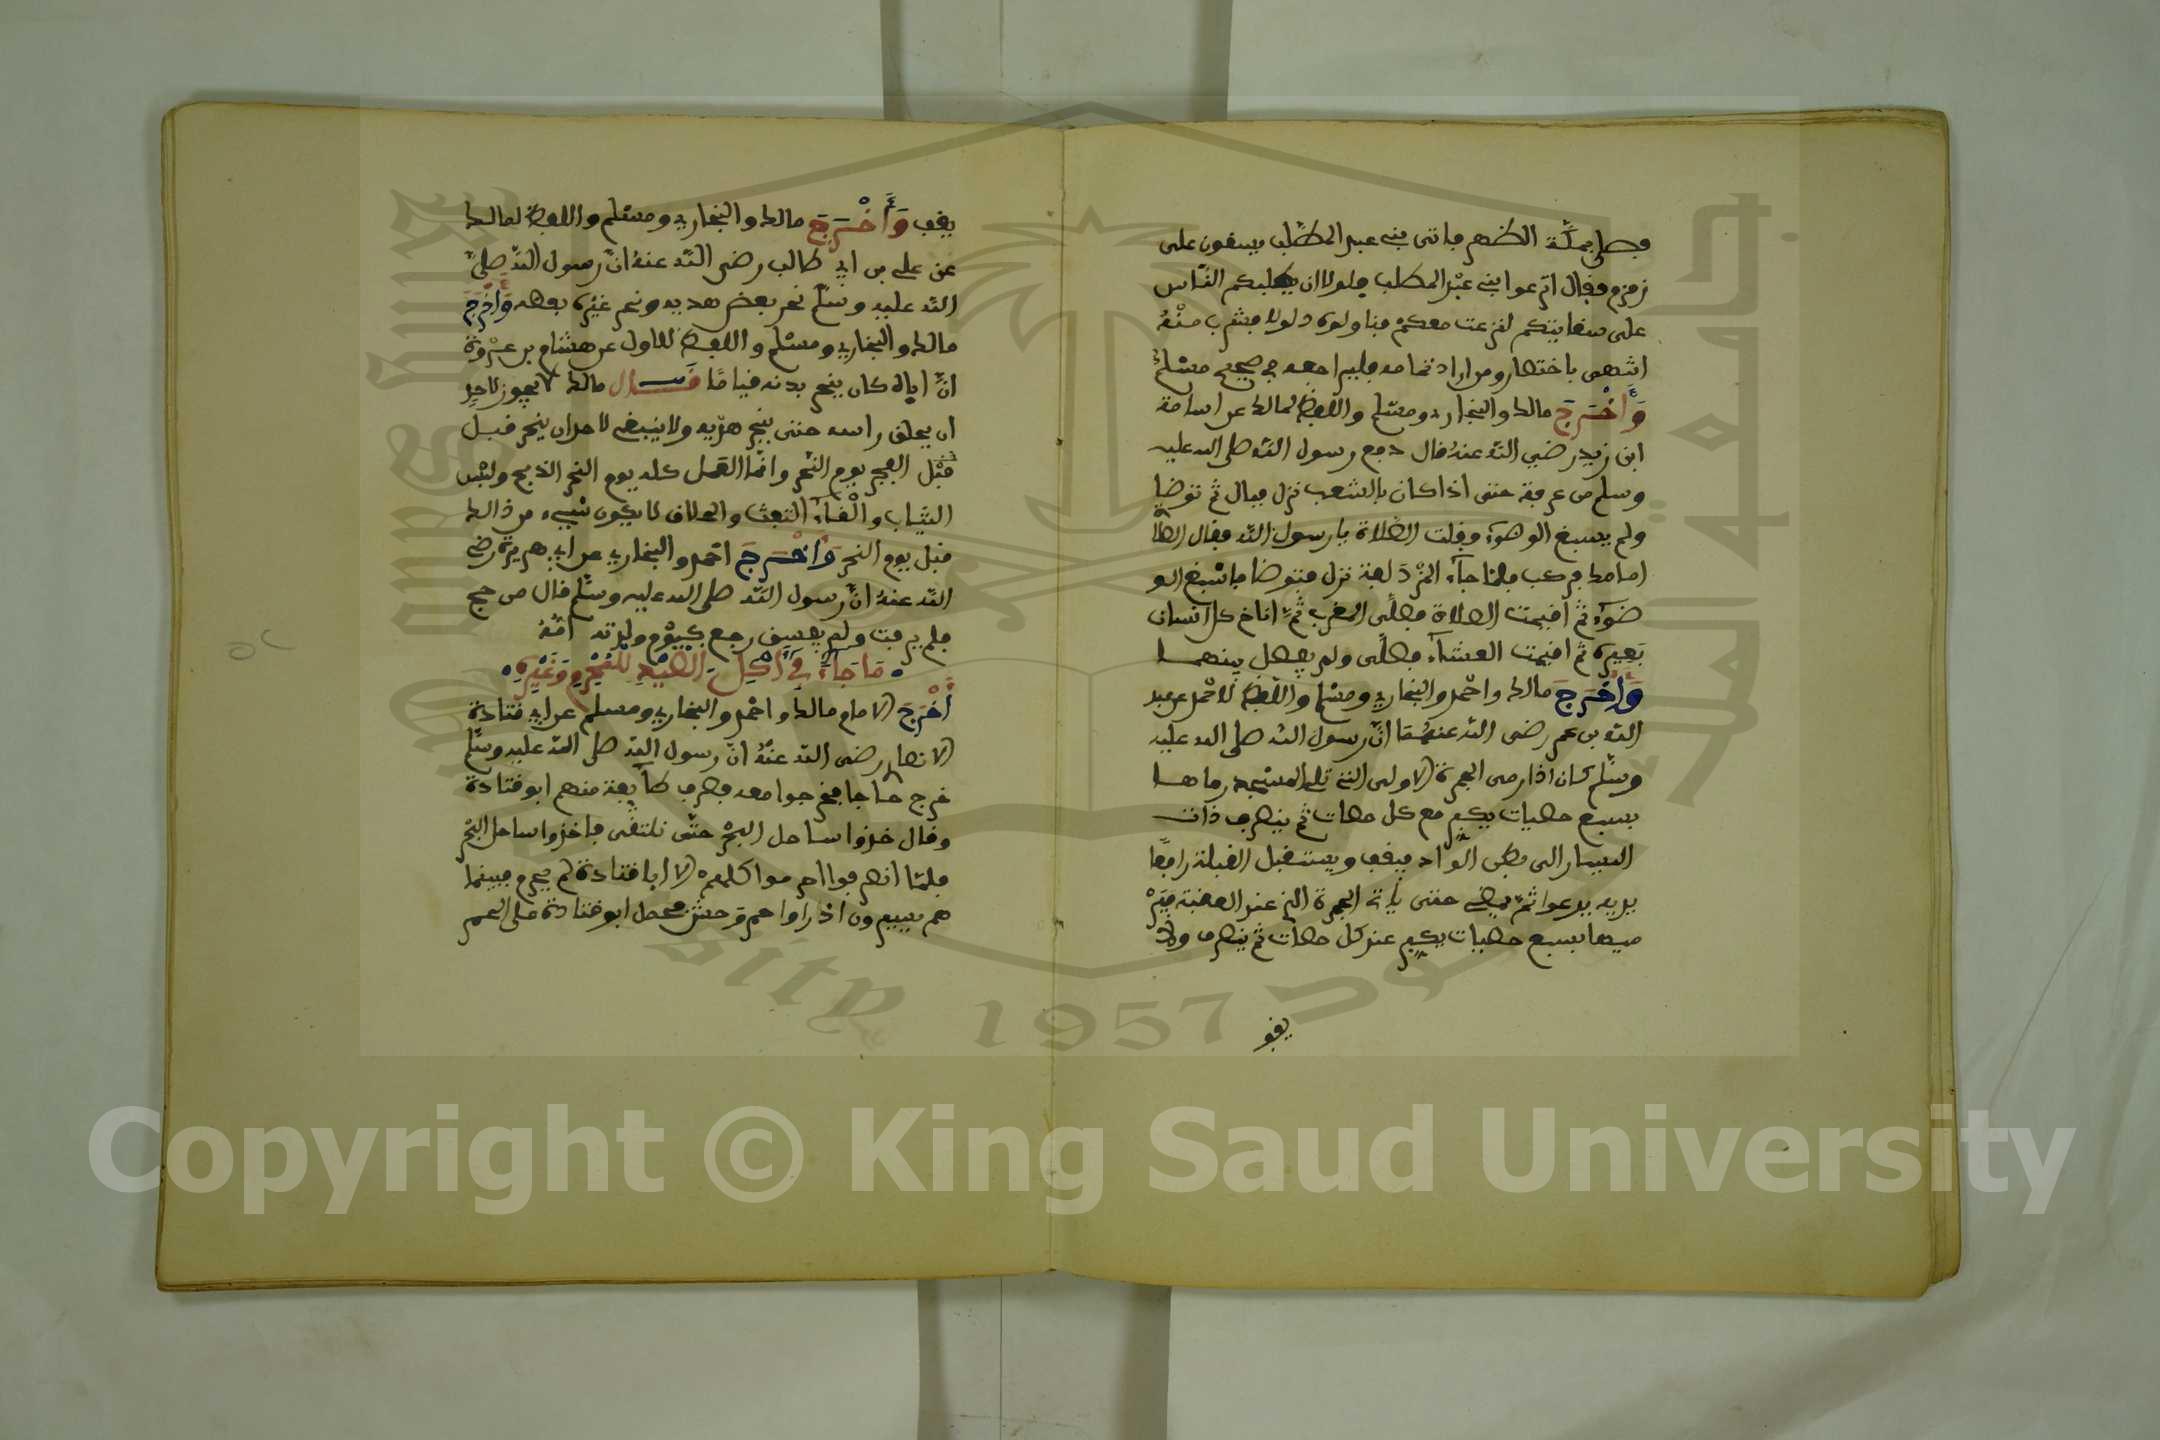 فصلى بمكّة الظهر فاتى بني عبد المطّلب يسقون على
زمزم فقال انزعوا بني عبد المطلب فلولا ان يغلبكم النّاس
على سقايتكم لنزعت معكم فناولوه دلوا فشرب منْهُ
انتهى باختصار ومن اراد تمامه فليراجعه في صحيح مسْلم
وَأَخْرَجَ مالك والبخاري ومسْلم واللفظ لمالك عن اسامة
ابن زيد رضي اللّه عنهُ قال دفع رسول اللّه صلى الله عليه
وسلم من عرفة حتى اذا كان بالشعب نزل فبال ثم توضا
ولم يسبغ الوضوء وقلت الصّلاة يا رسول اللّه فقال الصلا
امامك فركب فلمّا جآء المزْدَلفة نزل فتوضا فاسْبغ الو
ضوَء ثم اقيمت الصلاة فصلّى المغرب ثمَّ اناخ كل انسان
بَعِيرهُ ثم اقيمت العشآء فصلّى ولم يصل بينهما
وَأَخْرَجَ مالك واحْمد والبخاري ومسْلم واللّفظ لاحْمد عن عبد
اللّه بن عمر رضي اللّه عنهُمَا انّ رسول اللّه صلى الله عليه
وسَلّم كان اذا رمى الجمرة الاولى التي تلي المسْجد رماها
بسبع حصيات يكبر مع كل حصات ثم ينصرف ذات
اليسار الى بطن الوادِ فيقف ويستقبل القبلة رافعًا
يديه يدعوا ثمّ يمضي حتى ياتي الجمرة التي عند العقبة فيَرْ
ميها بسبع حصيات يكبر عند كل حصات ثم ينصرف ولا
يقف
يقف وَأَخْرَجَ مالك والبخاري ومسْلم واللفظ لمالك
عن علي بن ابي طالب رضي اللّه عنهُ انّ رسول اللّه صلى
اللّه عليه وسَلّم نحر بعض هديه ونحر غيْره بعضه وَأَخْرَجَ
مالك والبخاري ومسْلم واللفظ للاول عن هشام بن عرْوة
انّ اباه كان ينحر بدنه قياما قَــال مالك لا يجوز لاحد
ان يحلق راسه حتى ينحر هدْيه ولا ينبغي لاحد ان ينحر قبل
قبْل الفجر يوم النّحر وانّما العمل كله يوم النحر الذبح ولبْس
الثياب وإلْقآء التفث والحلاق لا يكون شيء من ذالك
قبل يوم النحر وَأَخْرَجَ احْمد والبخاري عن ابي هريرة رضي
اللّه عنهُ انّ رسول اللّه صلى الله عليه وسَلّم قال من حج
فلم يرفث ولم يفسق رجع كيوْم ولدته امّهُ
مَا جَآءَ فِي أَكْلِ الصَّيْدِ لِلْمُحْرِمِ وَغَيْرِهِ
أَخْرَجَ الامام مالك واحْمد والبخاري ومسلم عن ابي قتادة
الانصار رضي اللّه عنهُ انّ رسول اللّه صلى اللّه عليه وسَلّم
خرج حاجا فخرجوا معه فصرف طآئفة منهم ابو قتادة
وقال خذوا ساحل البحْر حتّى نلتقى فاخذوا ساحل البحْر
فلمّا انصرفوا احرموا كلهمْ الا ابا قتادة لم يحرم فبينما
هم يسيرون اذ راوا حمر وَحش فحمل ابو قتادة على الحمر
Copyright © King Saud University
1957